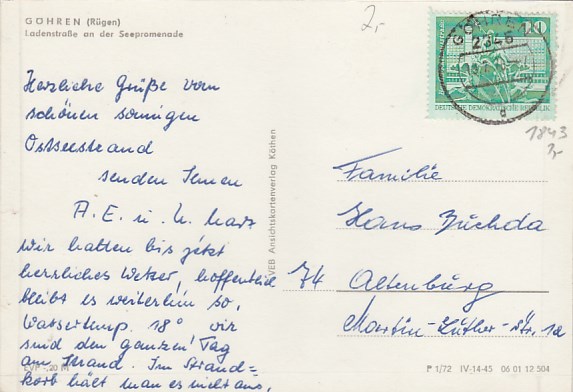 GÖHREN (Rügen)
Ladenstraße an der Seepromenade
2,-
GÖHREN
2345
10
DEUTSCHE DEMOKRATISCHE REPUBLIK
d
1843
2,-
Herzliche Grüße vom
schönen sonnigen
Ostseestrand
senden Ihnen
A. E. u. U. Marx
Wir hatten bis jetzt
herrliches Wetter, hoffentlich
bleibt es weiterhin so,
Wassertemp. 18° wir
sind den ganzen Tag
am Strand. Im Strand-
korb hält man es nicht aus,
VEB Ansichtskartenverlag Köthen
Familie
Hans Zuchda
74 Altenburg
Martin-Luther-Str. 12
EVP -,20 M
P 1/72 IV-14-45 06 01 12 504